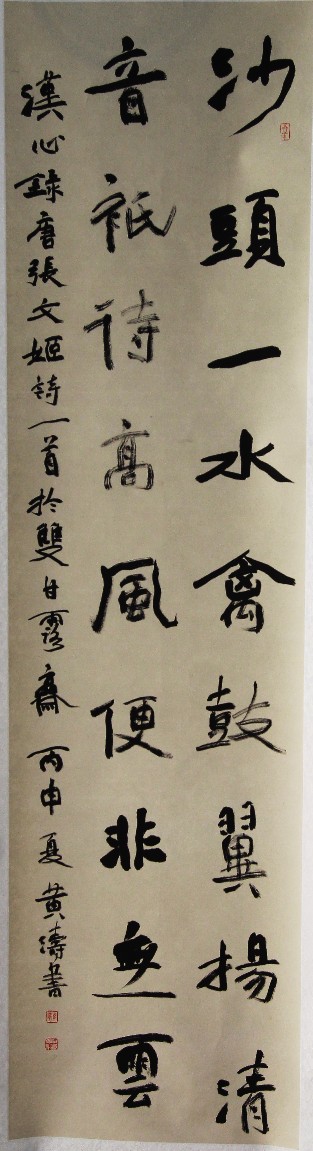 沙頭一水禽鼓翼揚清
音祇待高風便非無雲
漢心 錄唐張文姬詩一首於雙甘露齋 丙申夏黃濤書